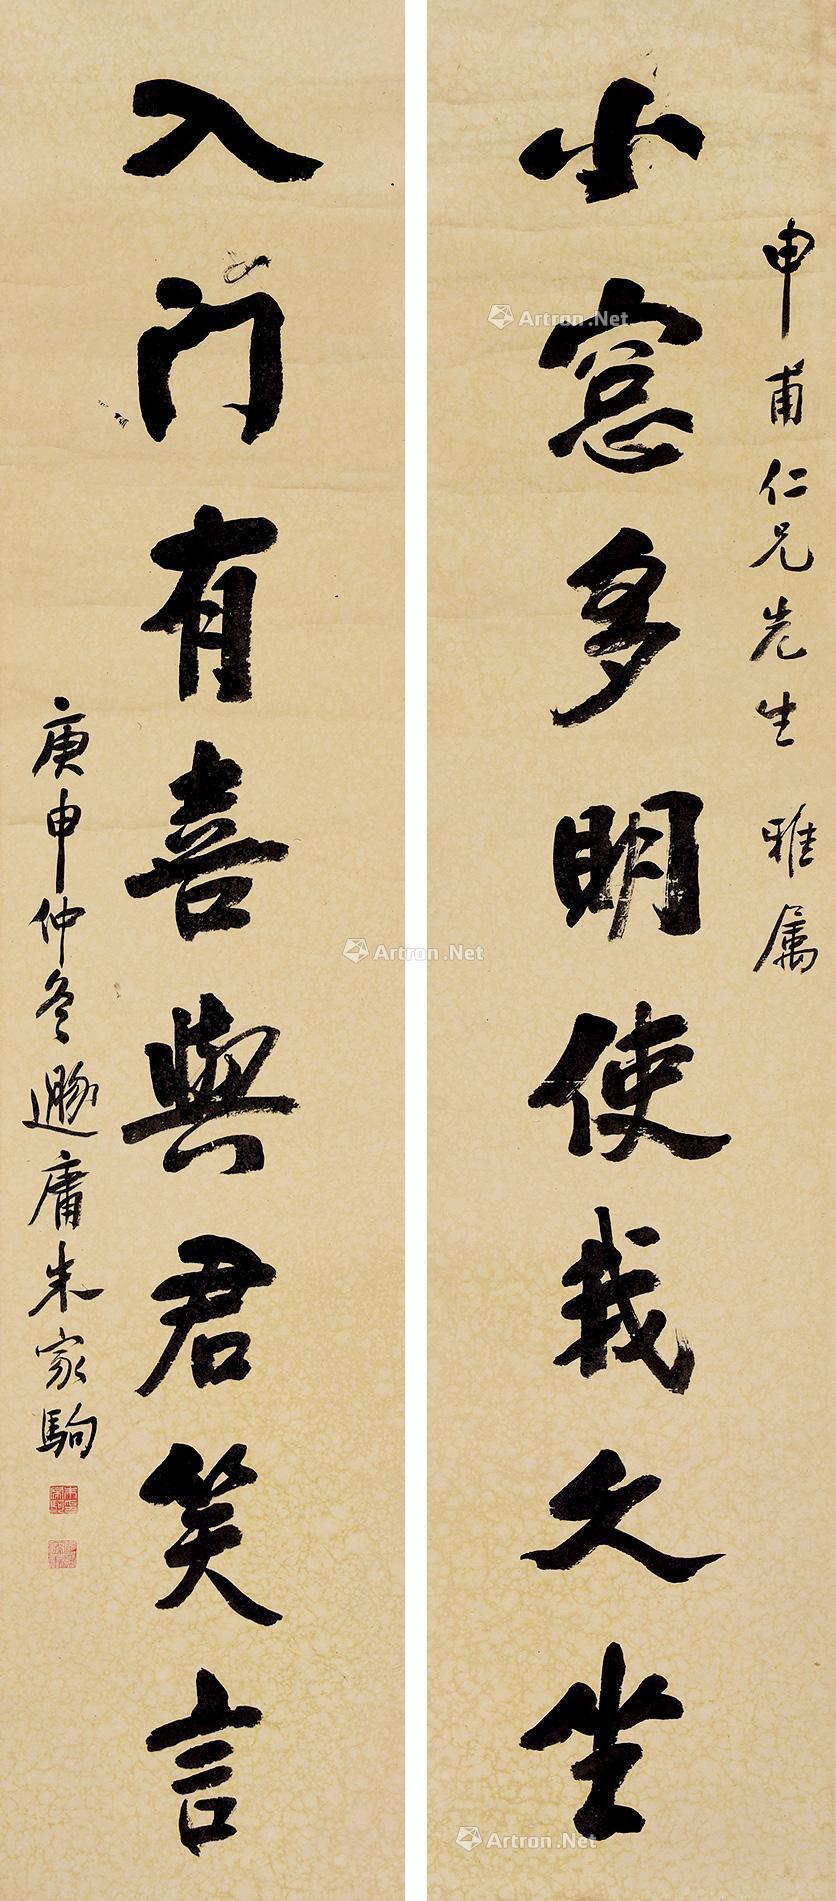 申甫仁兄先生 雅属
小窓多明使我久坐
入门有喜與君笑言
庚申仲冬遯庸朱家駒
Artron.Net
Artron.Net
Artron.Net